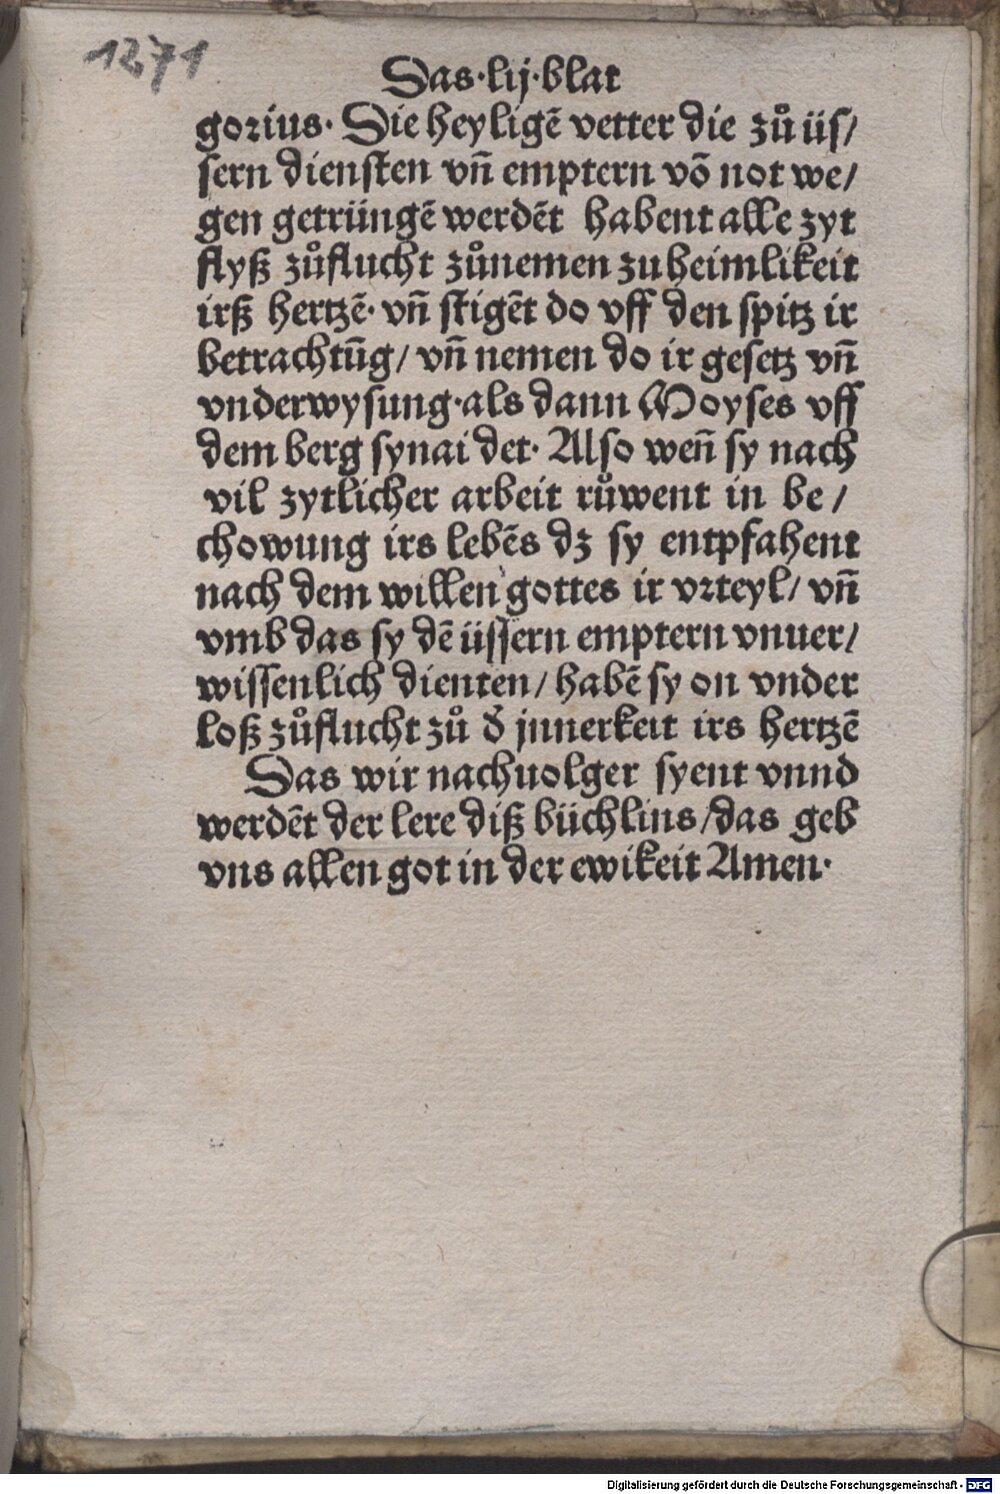 1271
Das·lij·blat
gorius· Die heyligē vetter die zů üs/
sern diensten vñ emptern vō not we/
gen getrüngē werdēt habent alle zyt
flyß zůflucht zůnemen zu heimlikeit
irß hertzē· vñ stigēt do vff den spitz ir
betrachtūg/ vñ nemen do ir gesetz vñ
vnderwysung·als dann Moyses vff
dem berg synai det· Also weñ sy nach
vil zytlicher arbeit růwent in be/
chowung irs lebēs dz sy entpfahent
nach dem willen gottes ir vrteyl/ vñ
vmb das sy dē üssern emptern vnuer/
wissenlich dienten/ habē sy on vnder
loß zůflucht zů d̕ jnnerkeit irs hertzē
Das wir nachuolger syent vnnd
werdēt der lere diß büchlins/das geb
vns allen got in der ewikeit Amen·
Digitalisierung gefördert durch die Deutsche Forschungsgemeinschaft - DFG